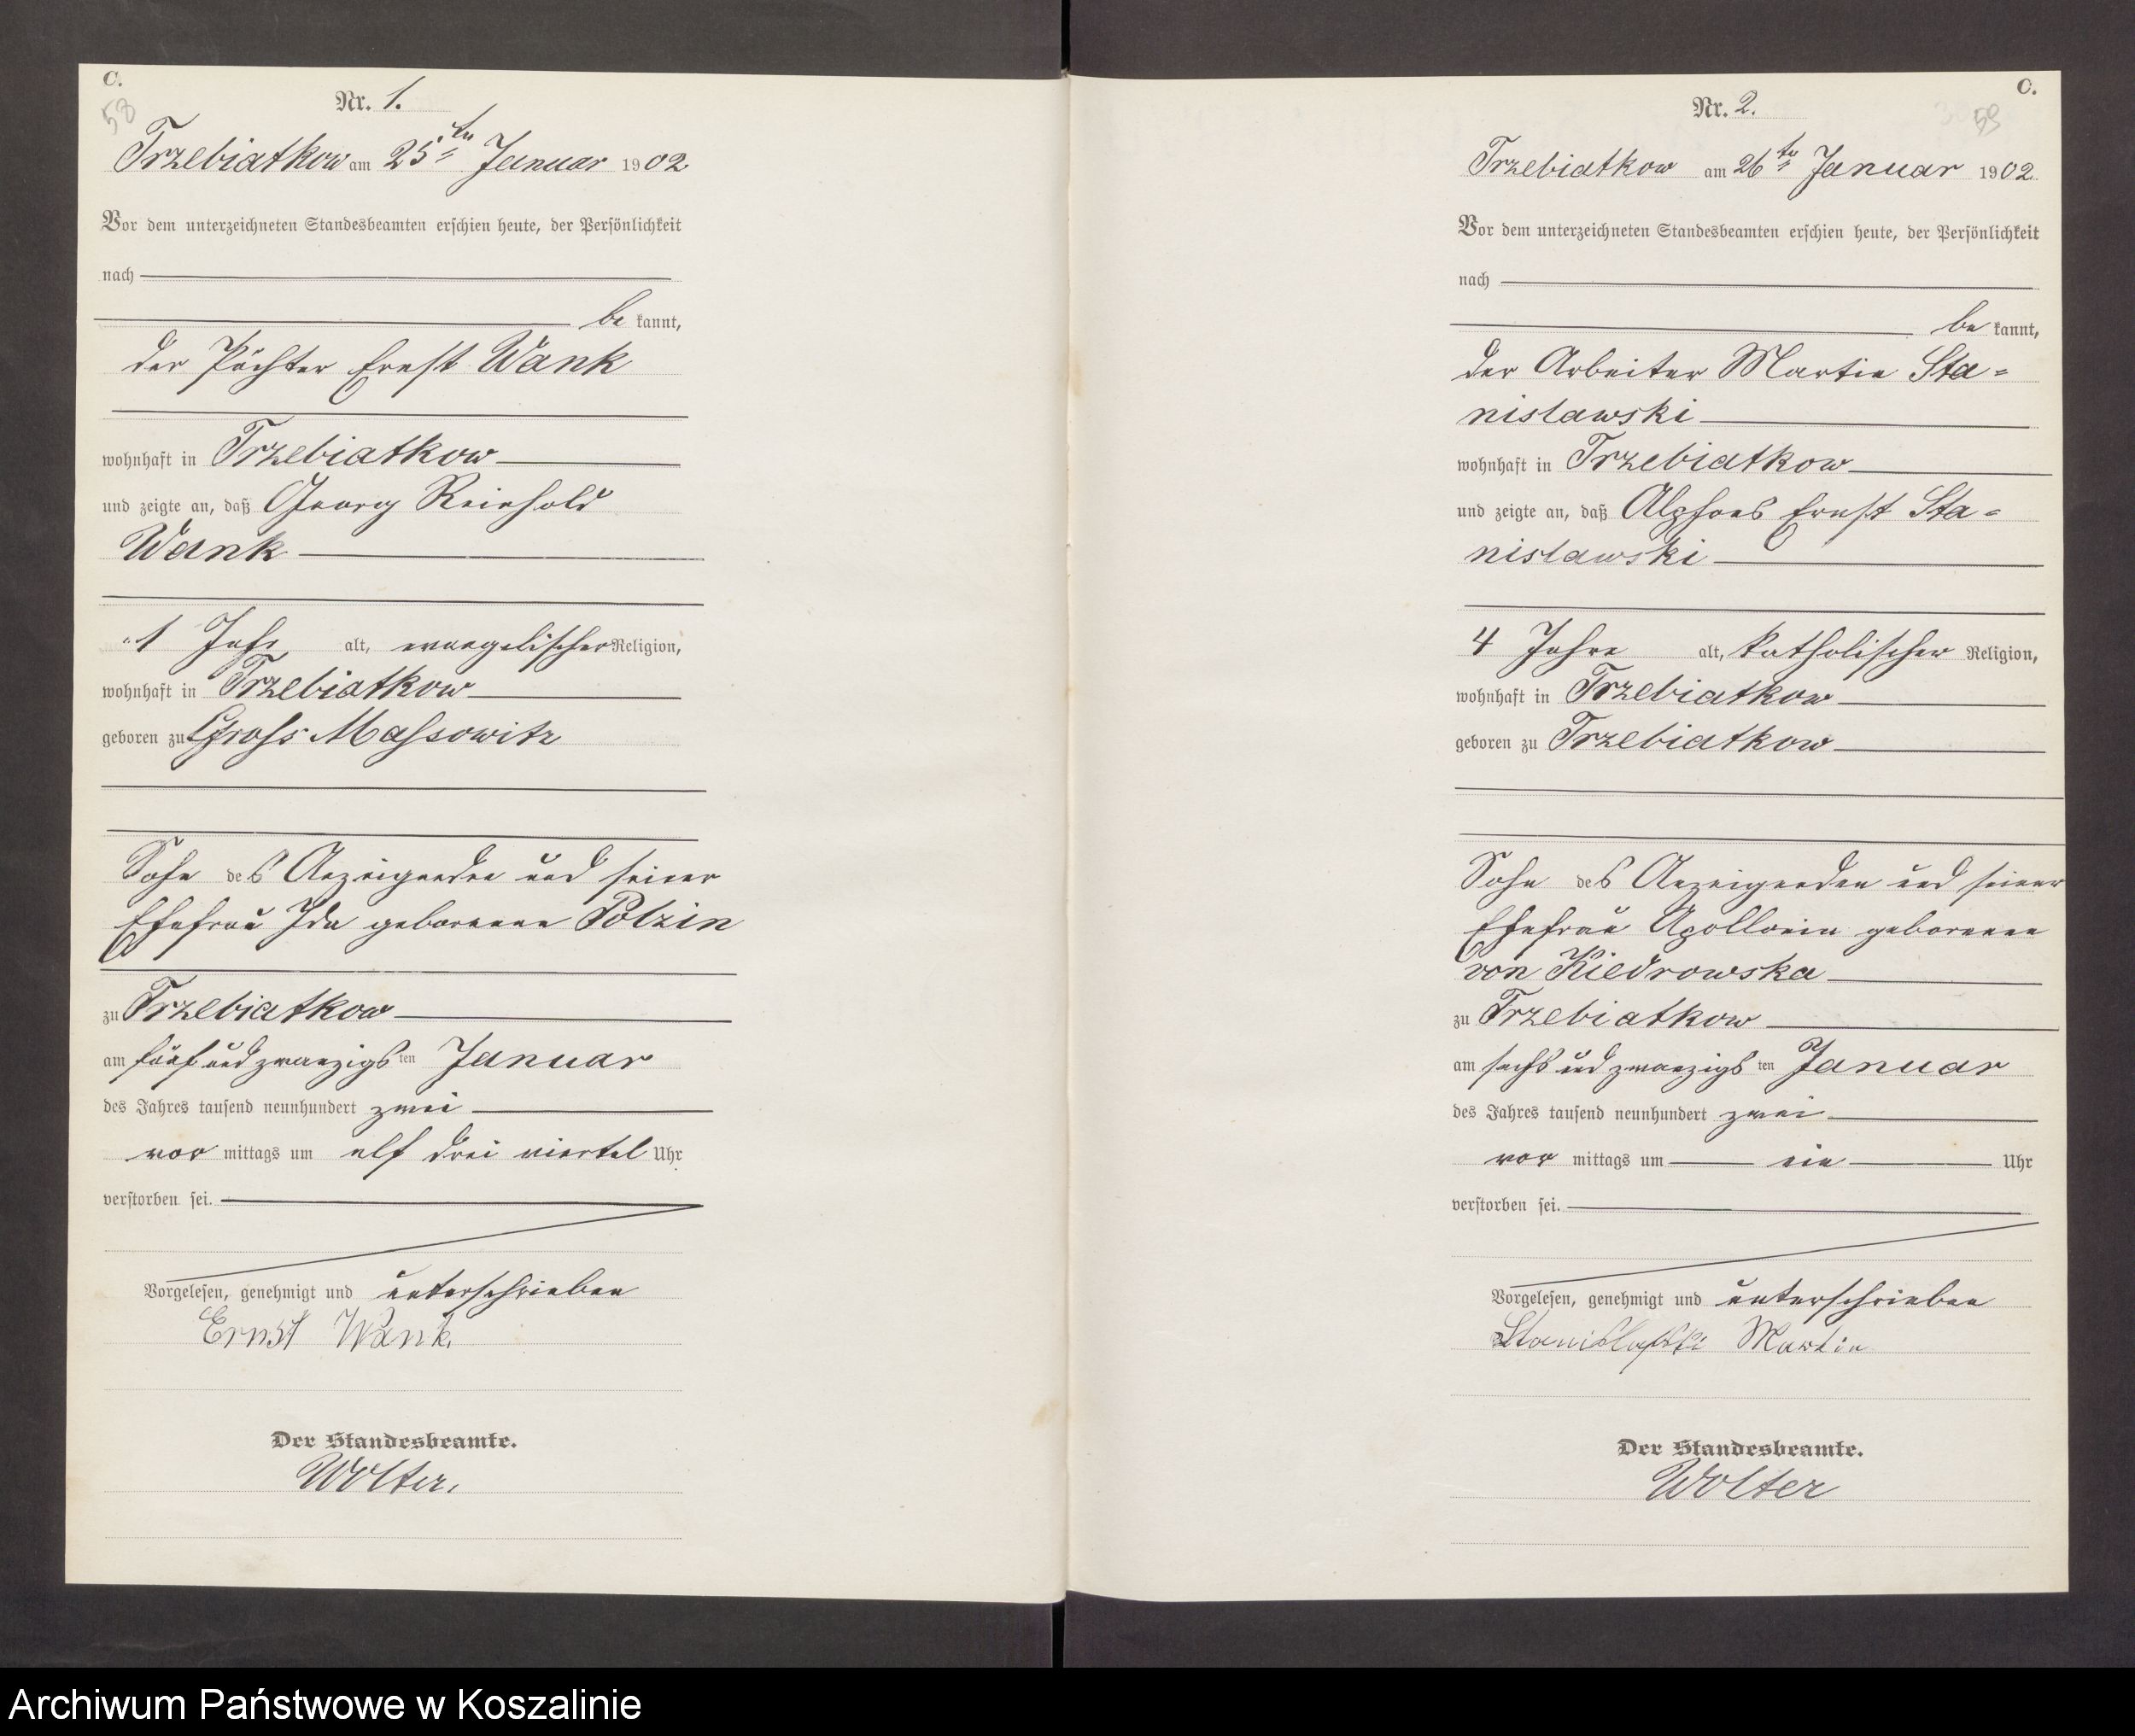 C.
58
Nr. 1.
Trzebiatkow am 25ten Januar 1902
Vor dem unterzeichneten Standesbeamten erschien heute, der Persönlichkeit
nach
be kannt,
der Pächter Ernst Wank
wohnhaft in Trzebiatkow
und zeigte an, daß Georg Reinhold
Wank
1 Jahr alt, evangelischer Religion,
wohnhaft in Trzebiatkow
geboren zu Gross Massowitz
Sohn des Anzeigenden und seiner
Ehefrau Ida geborenen Polzin
zu Trzebiatkow
am fünf und zwanzigsten Januar
des Jahres tausend neunhundert zwei
vor mittags um elf drei viertel Uhr
verstorben sei.
Vorgelesen, genehmigt und unterschrieben
Ernst Wank.
Der Standesbeamte.
Wolter.
C.
59
Nr. 2.
Trzebiatkow am 26ten Januar 1902
Vor dem unterzeichneten Standesbeamten erschien heute, der Persönlichkeit
nach
be kannt,
der Arbeiter Martin Sta=
nislawski
wohnhaft in Trzebiatkow
und zeigte an, daß Alphons Ernst Sta=
nislawski
4 Jahre alt, katholischer Religion,
wohnhaft in Trzebiatkow
geboren zu Trzebiatkow
Sohn des Anzeigenden und seiner
Ehefrau Apollonia geborenen
von Kiedrowska
zu Trzebiatkow
am sechs und zwanzigsten Januar
des Jahres tausend neunhundert zwei
vor mittags um ein Uhr
verstorben sei.
Vorgelesen, genehmigt und unterschrieben
Stanislafski Martin
Der Standesbeamte.
Wolter
Archiwum Państwowe w Koszalinie